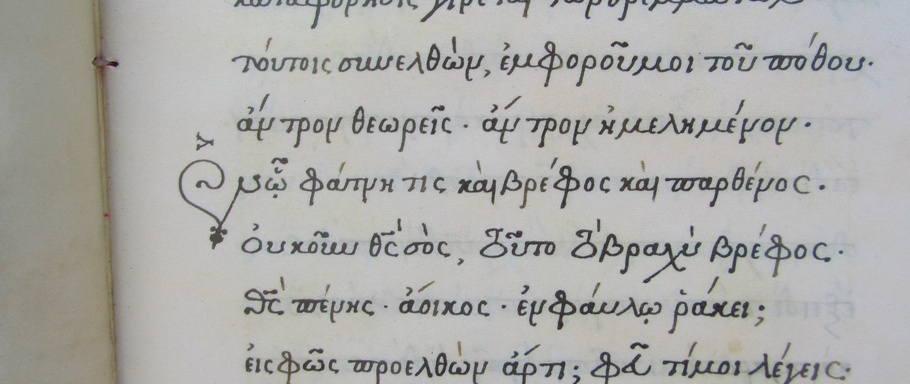 τούτοις συνελθὼν, ἐμφοροῦμαι τοῦ πόθου·
ἄντρον θεωρεῖς· ἄντρον ἠμελημένον·
φάτνη τις καὶ βρέφος καὶ παρθένος.
Οὐκοῦν θς σὸς, τοῦτο τὸ βραχὺ βρέφος·
θς πένης· ἄοικος· ἐν φαύλῳ ῥάκει;
εἰς φῶς προελθὼν ἄρτι; φεῦ τί μοι λέγεις·